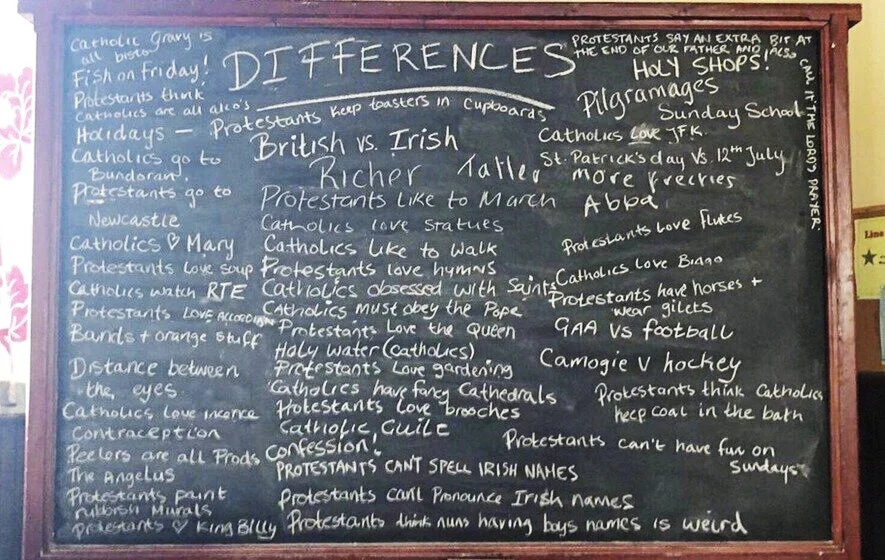 DIFFERENCES
Catholic Gravy is
all bisto
Fish on Friday!
Protestants think
Catholics are all alco's
Holidays -
Catholics go to
Bundoran.
Protestants go to
Newcastle
Catholics ♡ Mary
Protestants love soup
Catholics watch RTE
Protestants LOVE ACCORDIAN
Bands + orange stuff
Distance between
the eyes
Catholics love incence
Contraception
Peelers are all Prods
The Angelus
Protestants paint
rubbish Murals
Protestants ♡ King Billy
Protestants keep toasters in Cupboards
British vs. Irish
Richer Taller
Protestants like to March
Catholics love statues
Catholics like to walk
Protestants love hymns
Catholics obsessed with Saints
Catholics must obey the Pope
Protestants Love the Queen
Holy Water (Catholics)
Protestants Love gardening
Catholics have fancy Cathedrals
Protestants Love brooches
Catholic Guilt
Confession!
PROTESTANTS CANT SPELL IRISH NAMES
Protestants can't Pronounce Irish names
Protestants think nuns having boys names is weird
PROTESTANTS SAY AN EXTRA BIT AT
THE END OF OUR FATHER AND ALSO
CALL IT THE LORDS PRAYER
HOLY SHOPS!
Pilgramages
Sunday School
Catholics Love JFK.
St. Patrick's day Vs. 12th July
more freckles
Abba
Protestants Love Flutes
Catholics Love Bingo
Protestants have horses +
wear gilets
GAA Vs football
Camogie V hockey
Protestants think Catholics
keep coal in the bath
Protestants can't have fun on
Sundays
Line